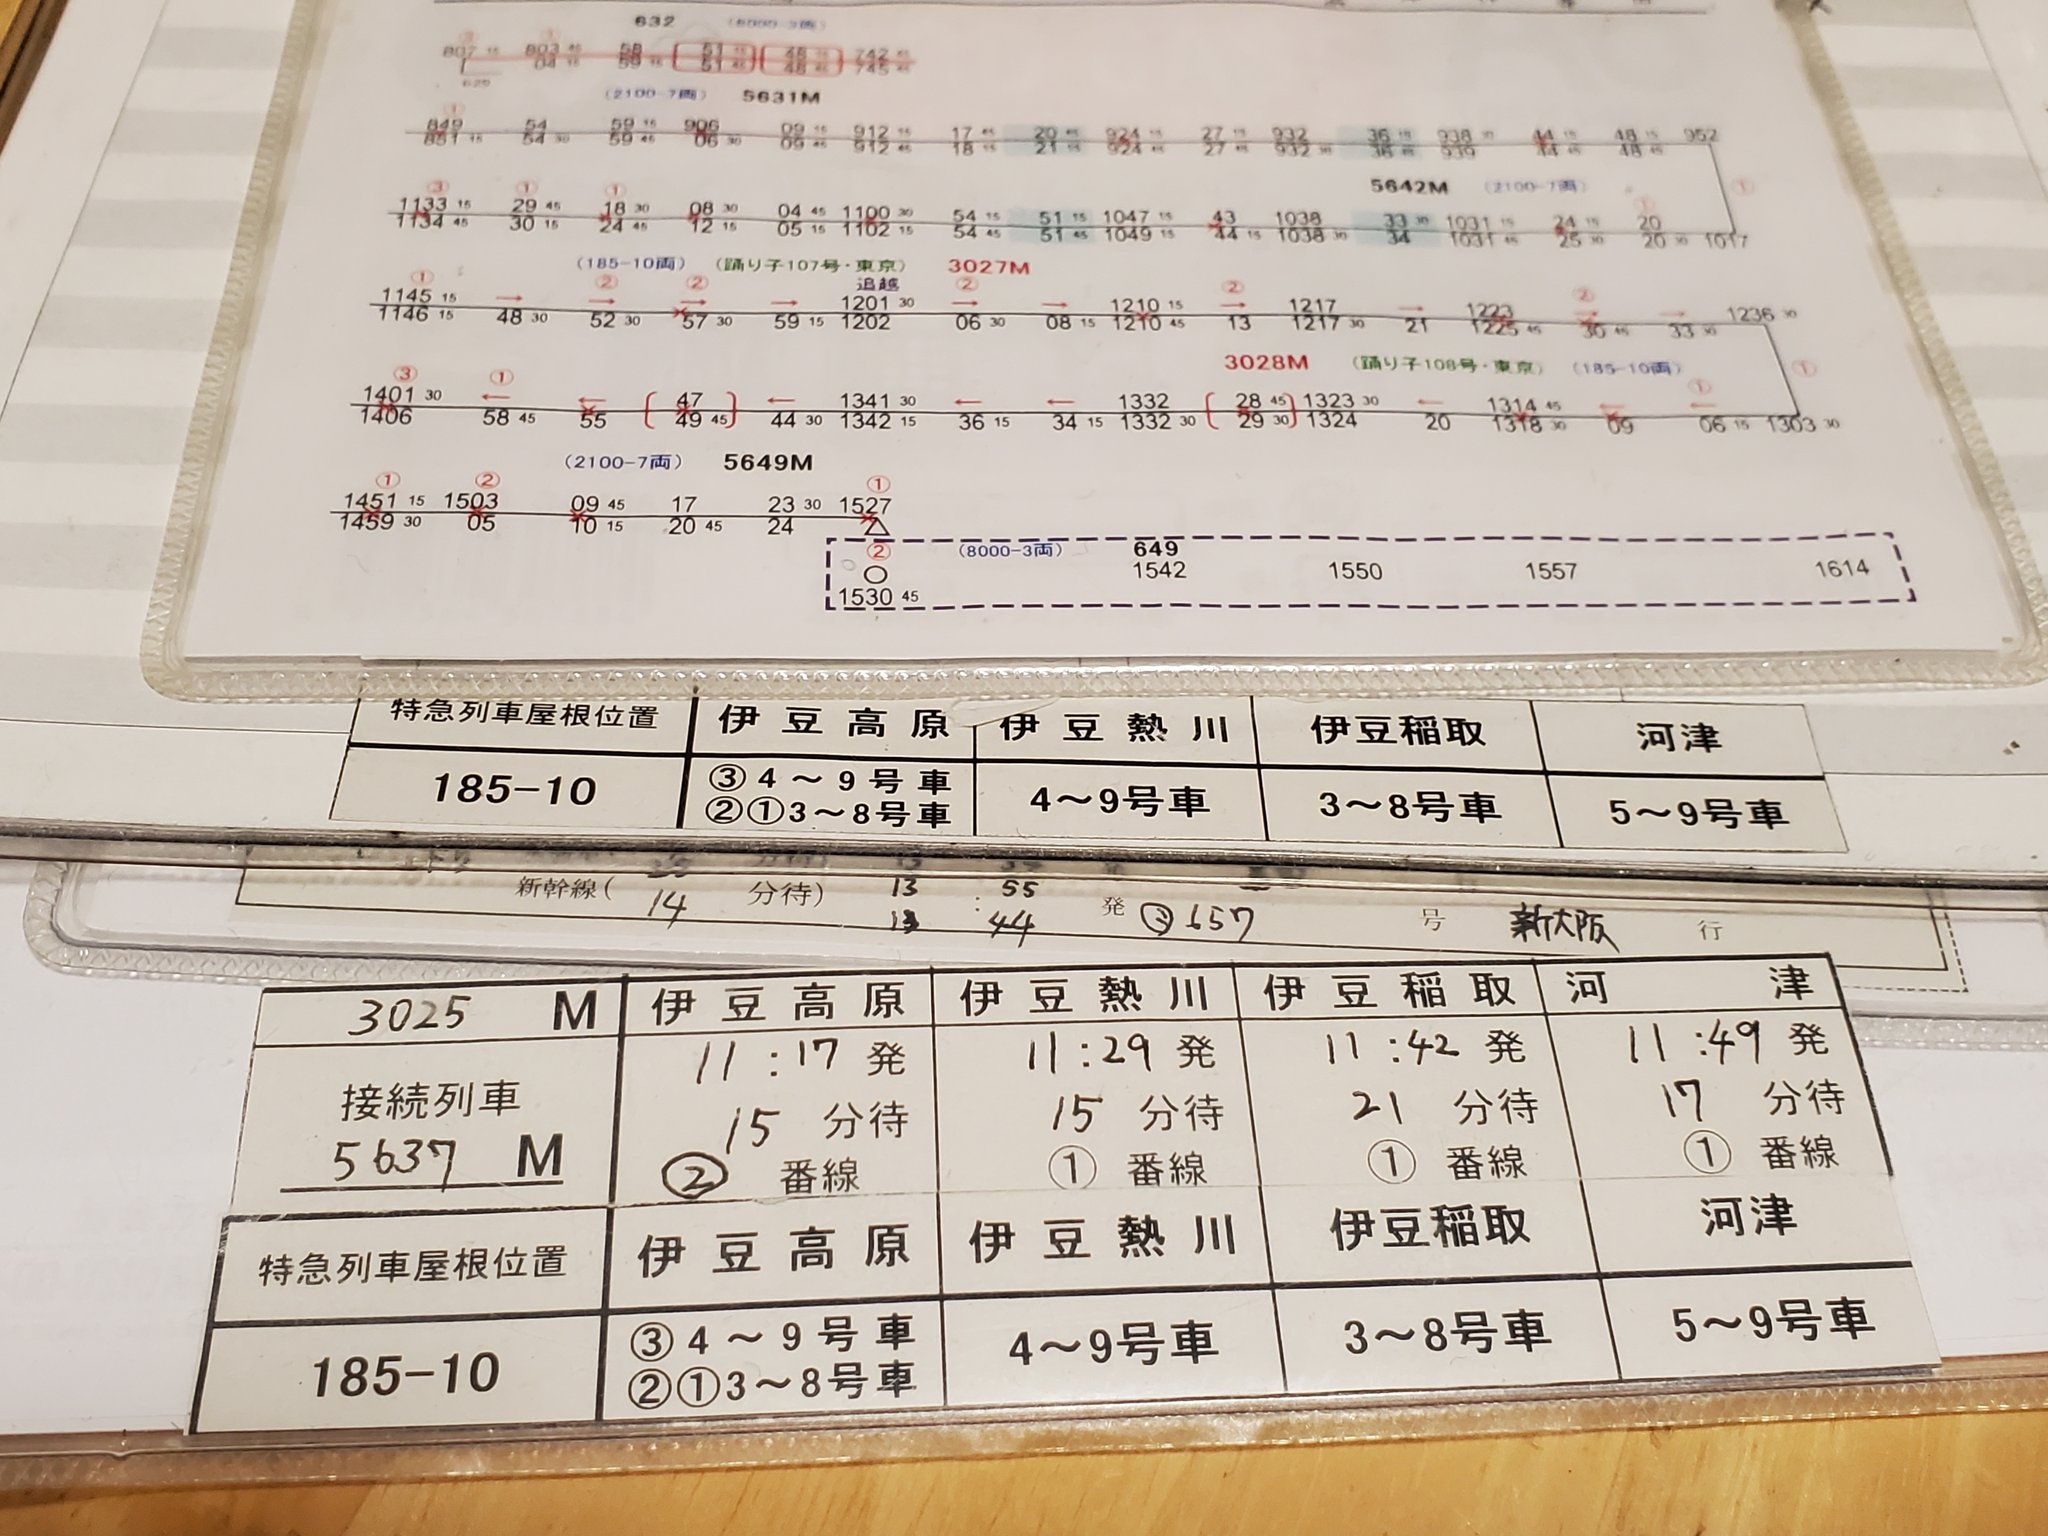 632 (8000-3両)
807 15 803 45 58 51 15 48 15 742 45
04 15 59 15 51 45 48 45 745 45
(2100-7両) 5631M
① ①
849 54 59 15 906 09 15 912 15 17 45 20 45 924 15 27 15 932 36 15 938 30 44 15 48 15 952
851 15 54 30 59 45 06 30 09 45 912 45 18 15 21 15 924 45 27 45 932 30 36 45 939 44 45 48 45
5642M (2100-7両) ①
③ ① ① ①
1133 15 29 45 18 30 08 30 04 45 1100 30 54 15 51 15 1047 15 43 1038 33 30 1031 15 24 15 20
1134 45 30 15 24 45 12 15 05 15 1102 15 54 45 51 45 1049 15 44 15 1038 30 34 1031 45 25 30 20 30 1017
(185-10両) (踊り子107号・東京) 3027M
① ② ② 追越 ② ② ②
1145 15 → → → → 1201 30 → → 1210 15 → 1217 → 1223 → → 1236 30
1146 15 48 30 52 30 57 30 59 15 1202 06 30 08 15 1210 45 13 1217 30 21 1225 45 30 45 33 30
3028M (踊り子108号・東京) (185-10両) ①
③ ① ①
1401 30 ← ← 47 ← 1341 30 ← ← 1332 28 45 1323 30 ← 1314 45 ← ←
1406 58 45 55 49 45 44 30 1342 15 36 15 34 15 1332 30 29 30 1324 20 1318 30 09 06 15 1303 30
(2100-7両) 5649M
① ② ①
1451 15 1503 09 45 17 23 30 1527
1459 30 05 10 15 20 45 24 △
② (8000-3両) 649
○ 1542 1550 1557 1614
1530 45
特急列車屋根位置 伊豆高原 伊豆熱川 伊豆稲取 河津
185-10 ③4～9号車 4～9号車 3～8号車 5～9号車
②①3～8号車
新幹線( 14 分待) 13 : 55 発 ③657 号 新大阪 行
13 44
3025 M 伊豆高原 伊豆熱川 伊豆稲取 河津
11:17 発 11:29 発 11:42 発 11:49 発
接続列車 15 分待 15 分待 21 分待 17 分待
5637 M ② 番線 ① 番線 ① 番線 ① 番線
特急列車屋根位置 伊豆高原 伊豆熱川 伊豆稲取 河津
185-10 ③4～9号車 4～9号車 3～8号車 5～9号車
②①3～8号車